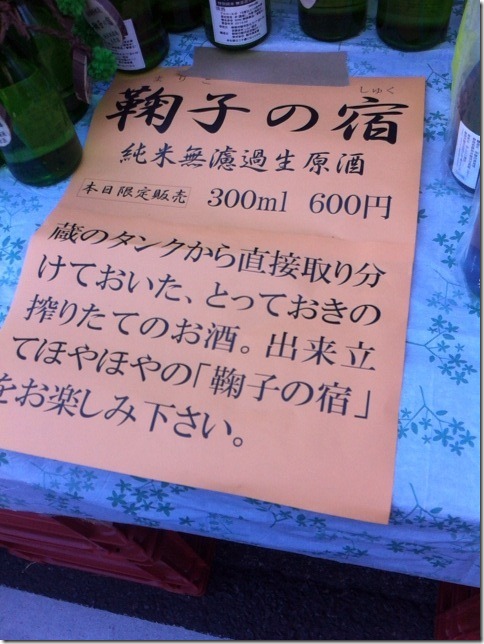 まりこ しゅく
鞠子の宿
純米無濾過生原酒
本日限定販売 300ml 600円
蔵のタンクから直接取り分
けておいた、とっておきの
搾りたてのお酒。出来立
てほやほやの「鞠子の宿」
をお楽しみ下さい。